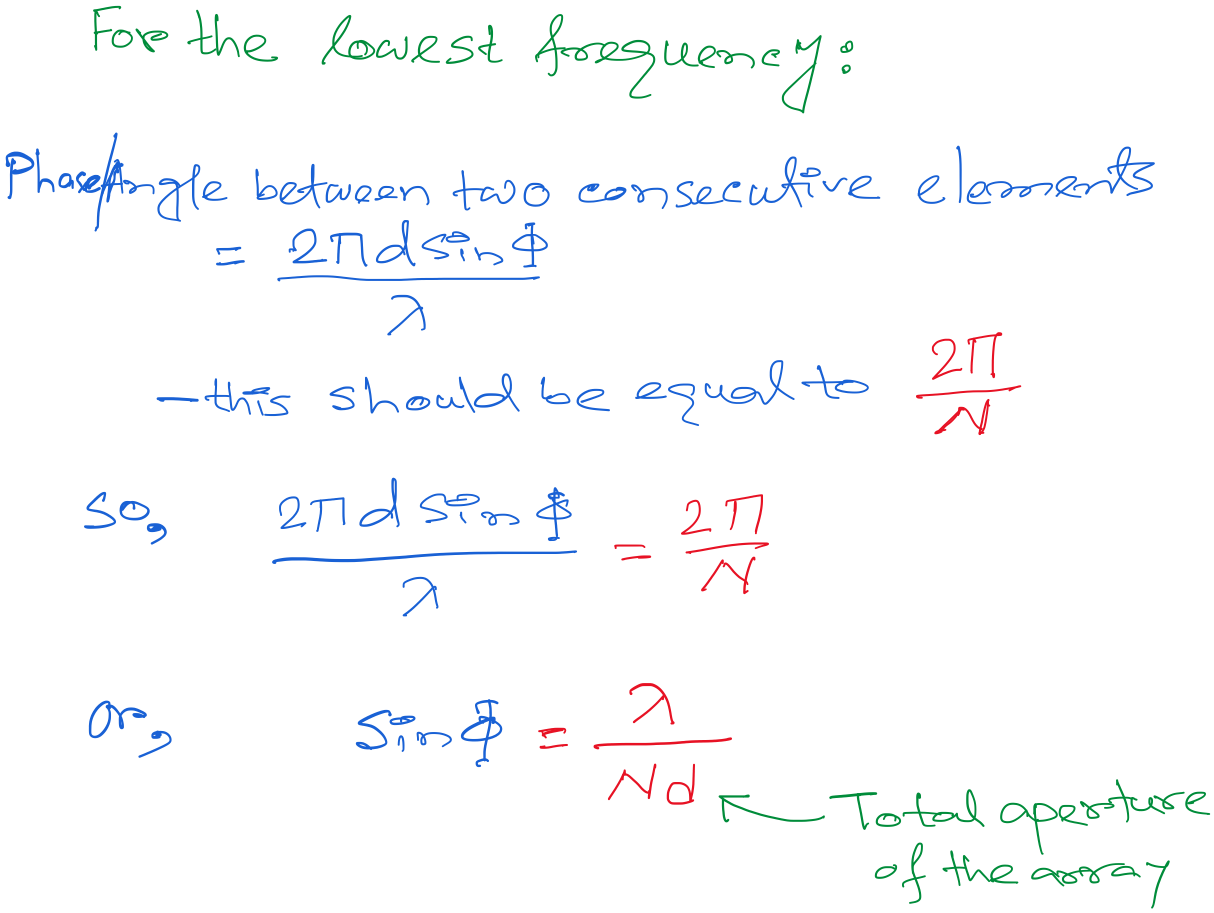 For the lowest frequency:
Phase/Angle between two consecutive elements
= 2πd sin Φ / λ
– this should be equal to 2π / N
So, 2πd sin Φ / λ = 2π / N
or, Sin Φ = λ / Nd
Total aperture
of the array